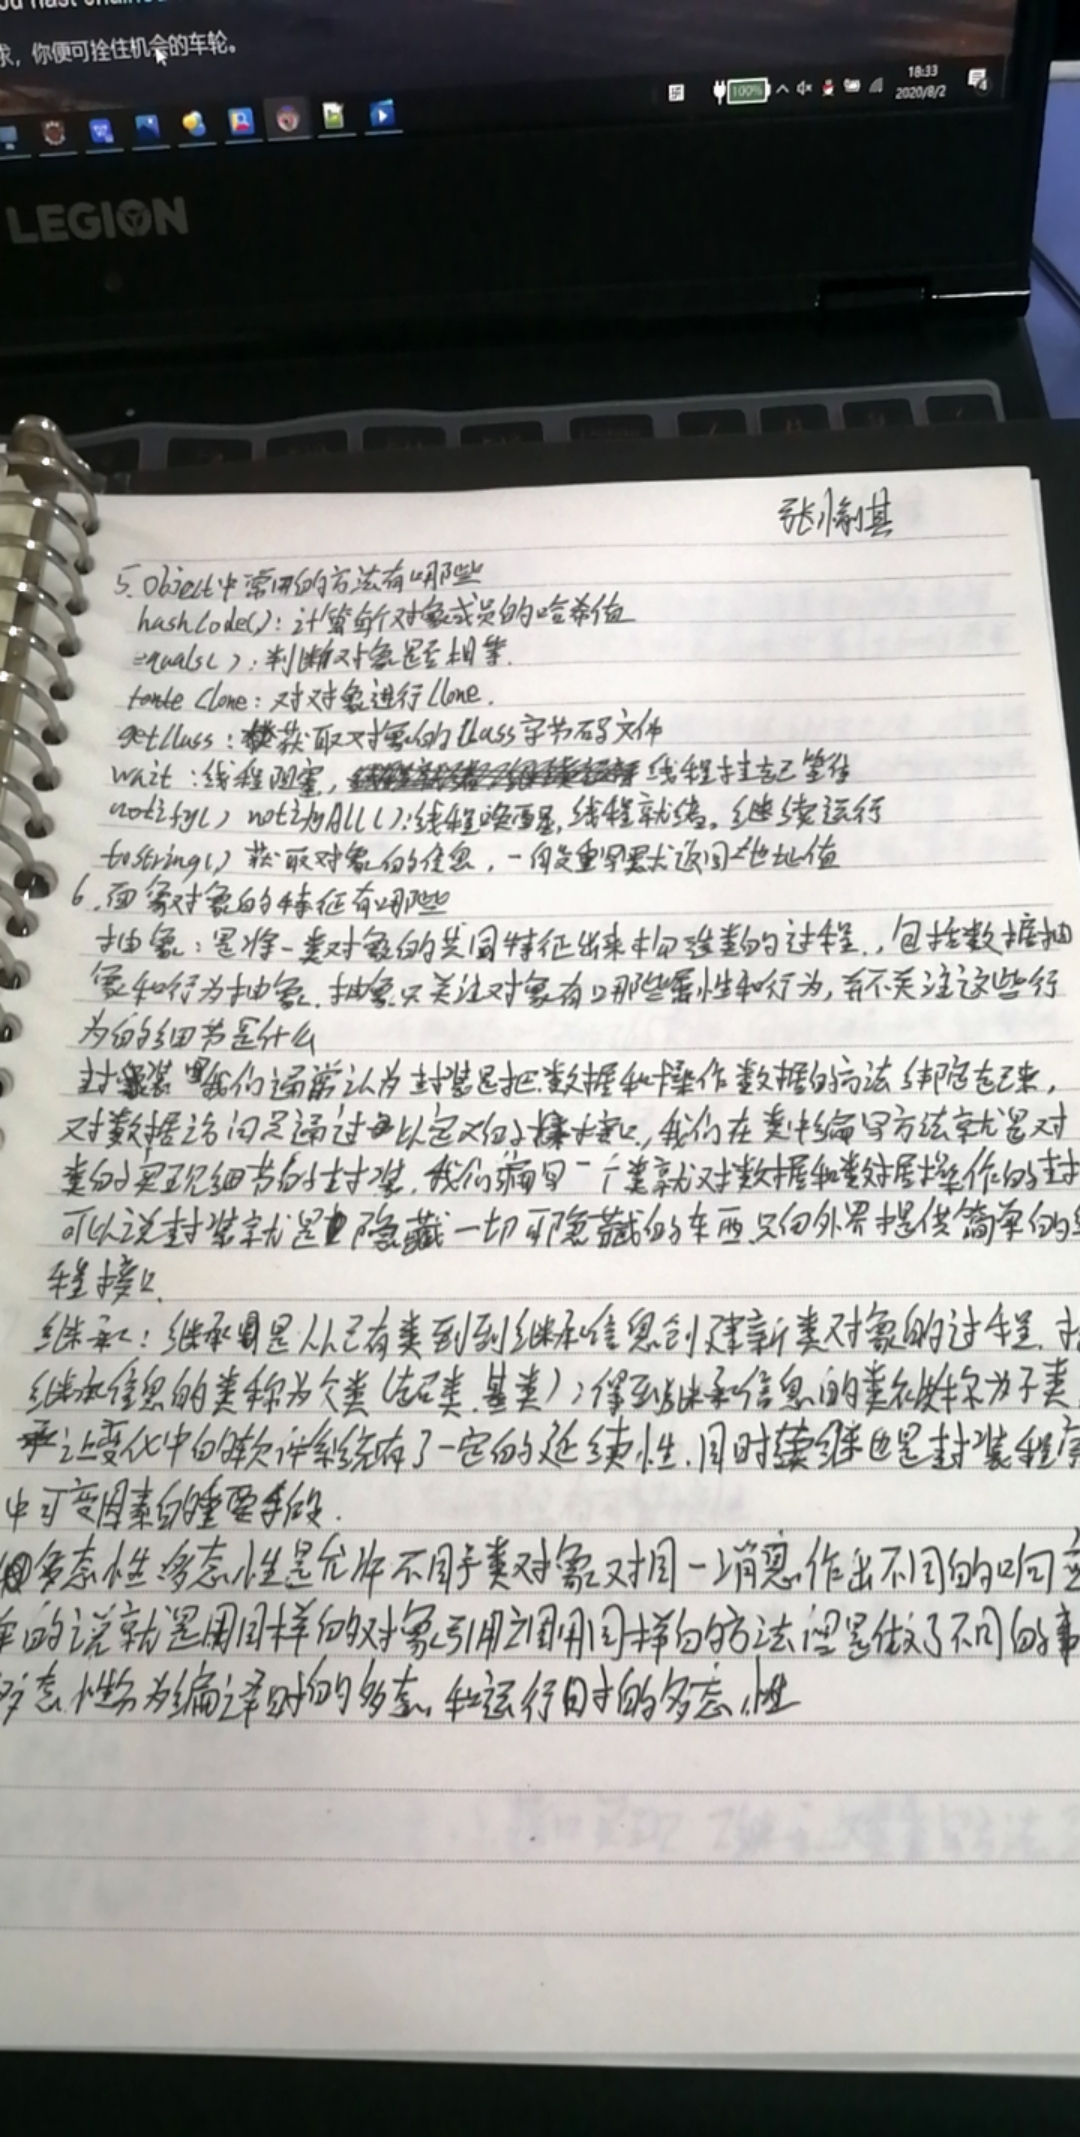 求，你便可拴住机会的车轮。
100%
18:33
2020/8/2
4
LEGION
5. Object中常用的方法有哪些
hashCode()：计算每个对象成员的哈希值
equals()：判断对象是否相等.
Clone：对对象进行Clone.
getClass：获取对象的Class字节码文件
wait：线程阻塞，线程挂起等待
notify() notifyAll()：线程唤醒，线程就绪。继续运行
toString() 获取对象的信息，一般重写要求返回地址值
6.面象对象的特征有哪些
抽象：是将一类对象的共同特征出来构造类的过程.，包括数据抽
象和行为抽象.抽象只关注对象有哪些属性和行为，并不关注这些行
为的细节是什么
封装 我们通常认为封装是把数据和操作数据的方法绑定起来，
对数据访问只通过以定义的接口，我们在类中编写方法就是对
类的实现细节的封装.我们编写一个类就对数据和数据操作的封
可以说封装就是隐藏一切可隐藏的东西.只向外界提供简单的编
程接口.
继承：继承是从已有类到到继承信息创建新类对象的过程.
继承信息的类称为父类(超类.基类)；得到继承信息的类被称为子类
让变化中的软件系统有了一定的延续性.同时继也是封装程序
中可变因素的重要手段.
多态性 多态性是允许不同子类对象对同一消息作出不同的响应
单的说就是用同样的对象引用调用同样的方法但是做了不同的事
多态性分为编译时的多态和运行时的多态性